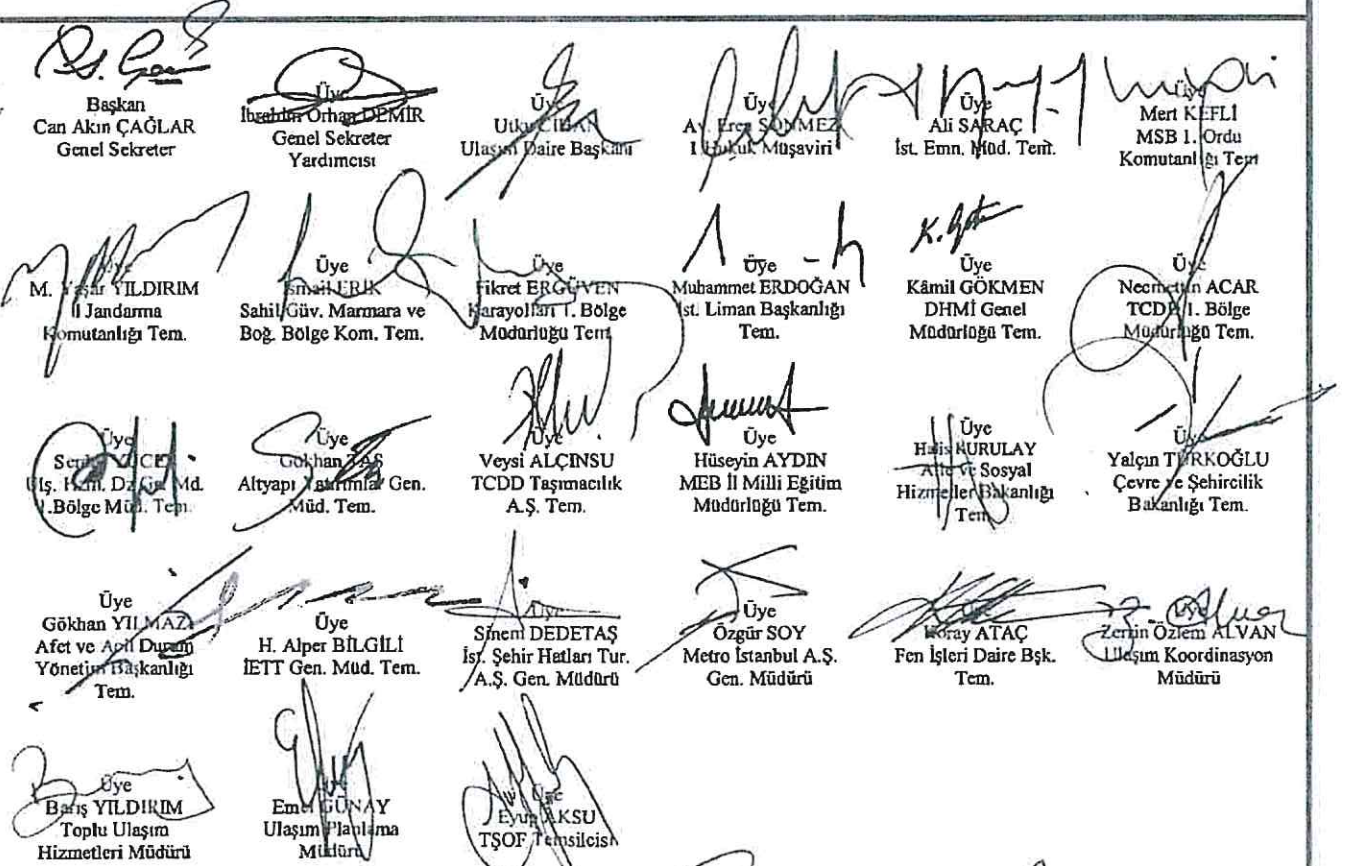 Başkan
Can Akın ÇAĞLAR
Genel Sekreter
Üye
İbrahim Orhan DEMİR
Genel Sekreter
Yardımcısı
Üye
Utku CİHAN
Ulaşım Daire Başkanı
Üye
Av. Eren SÖNMEZ
I. Hukuk Müşaviri
Üye
Ali SARAÇ
İst. Emn. Müd. Tem.
Üye
Mert KEFLİ
MSB 1. Ordu
Komutanlığı Tem
Üye
M. Yaşar YILDIRIM
İl Jandarma
Komutanlığı Tem.
Üye
İsmail ERİK
Sahil Güv. Marmara ve
Boğ. Bölge Kom. Tem.
Üye
Fikret ERGÜVEN
Karayolları 1. Bölge
Müdürlüğü Tem
Üye
Muhammet ERDOĞAN
İst. Liman Başkanlığı
Tem.
Üye
Kâmil GÖKMEN
DHMİ Genel
Müdürlüğü Tem.
Üye
Necmettin ACAR
TCDD 1. Bölge
Müdürlüğü Tem.
Üye
Md.
1.Bölge Müd. Tem.
Üye
Gökhan TAŞ
Altyapı Yatırımlar Gen.
Müd. Tem.
Üye
Veysi ALÇINSU
TCDD Taşımacılık
A.Ş. Tem.
Üye
Hüseyin AYDIN
MEB İl Milli Eğitim
Müdürlüğü Tem.
Üye
Halis KURULAY
Aile ve Sosyal
Hizmetler Bakanlığı
Tem
Üye
Yalçın TÜRKOĞLU
Çevre ve Şehircilik
Bakanlığı Tem.
Üye
Gökhan YILMAZ
Afet ve Acil Durum
Yönetim Başkanlığı
Tem.
Üye
H. Alper BİLGİLİ
İETT Gen. Müd. Tem.
Üye
Sinem DEDETAŞ
İst. Şehir Hatları Tur.
A.Ş. Gen. Müdürü
Üye
Özgür SOY
Metro İstanbul A.Ş.
Gen. Müdürü
Koray ATAÇ
Fen İşleri Daire Bşk.
Tem.
Üye
Zerrin Özlem ALVAN
Ulaşım Koordinasyon
Müdürü
Üye
Barış YILDIRIM
Toplu Ulaşım
Hizmetleri Müdürü
Emel GÜNAY
Ulaşım Planlama
Müdürü
Üye
Eyup AKSU
TŞOF Temsilcisi